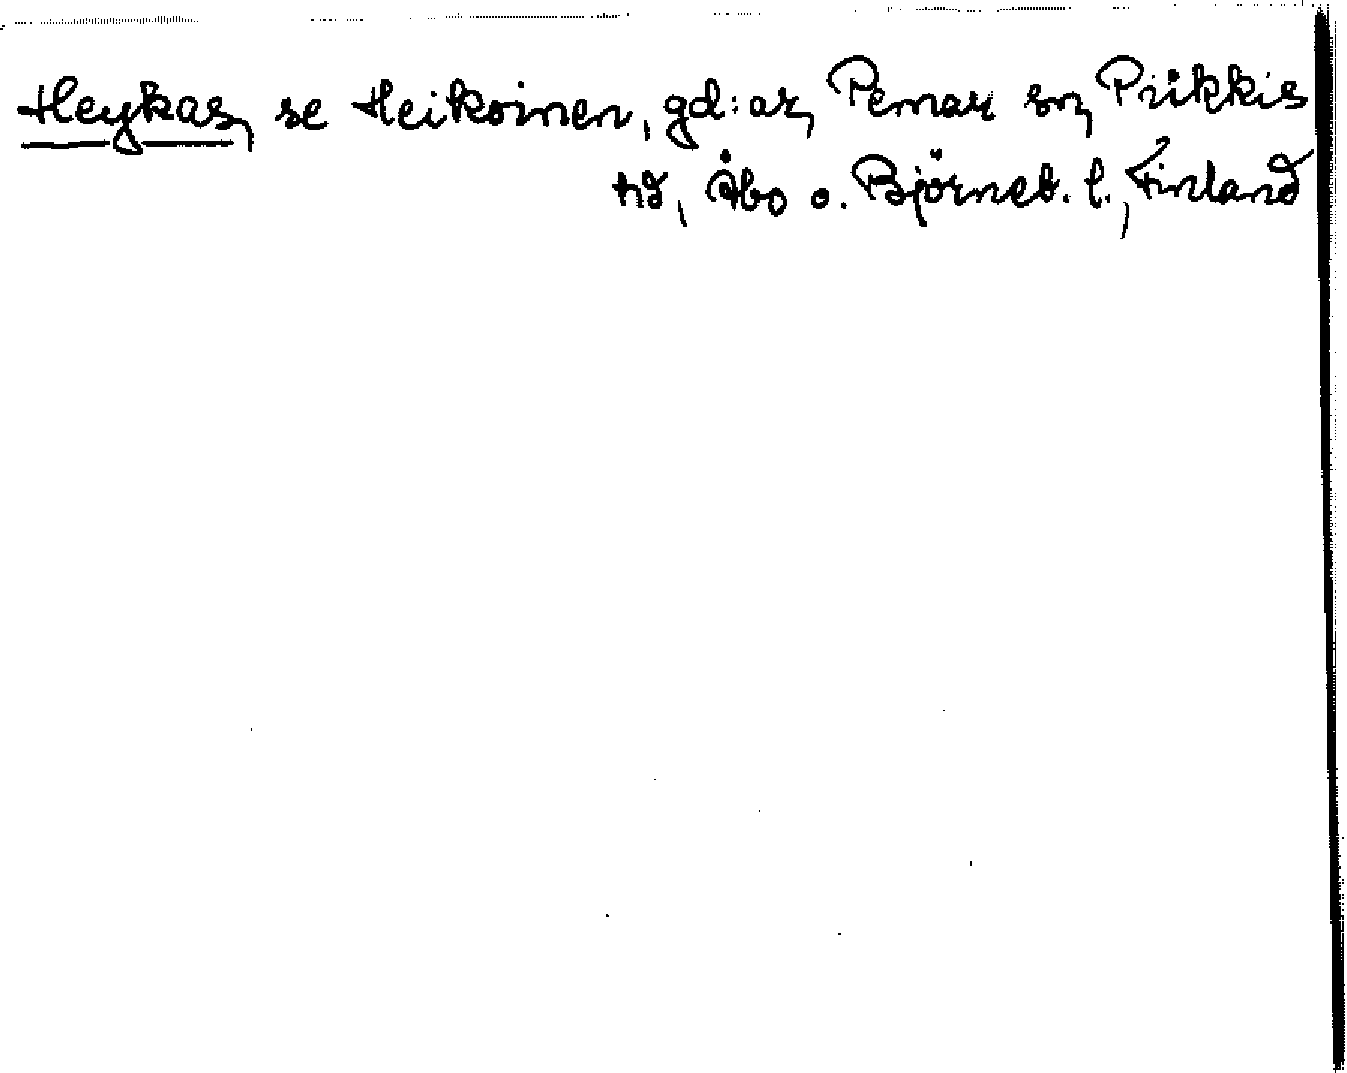 Heykas, se Heikoinen, gd:ar, Pemar sn, Piikkis
hd, Åbo o. Björneb. l., Finland